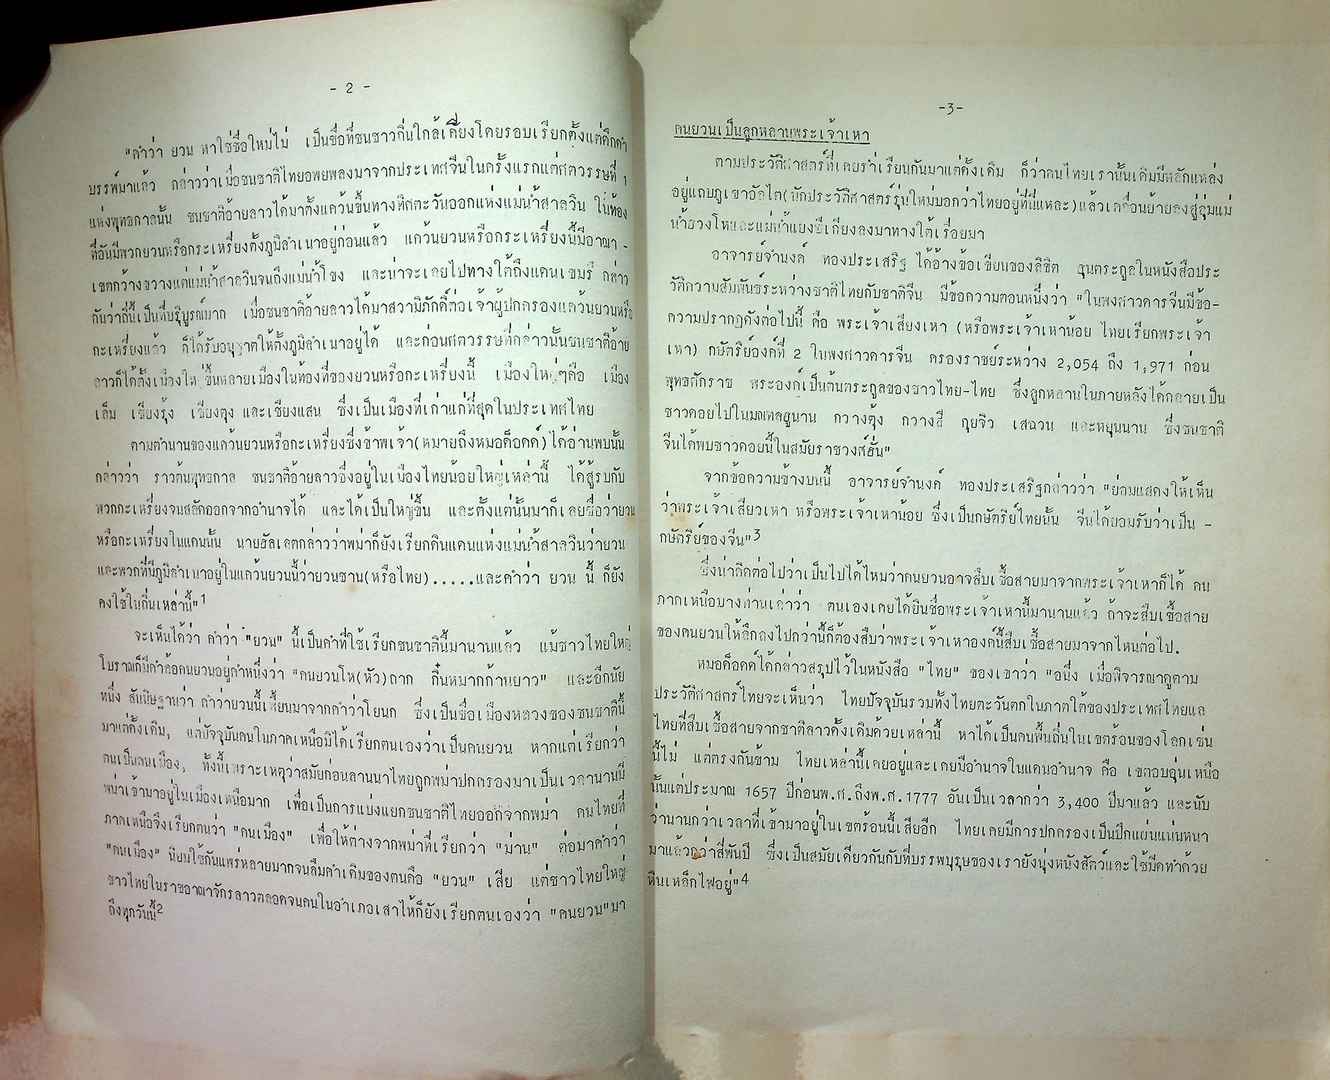 - 2 -
"คำว่า ยวน หาใช่ชื่อใหม่ไม่ เป็นชื่อที่ชนชาวถิ่นใกล้เคียงโดยรอบเรียกตั้งแต่ดึกดำ
บรรพ์มาแล้ว กล่าวว่าเมื่อชนชาติไทยอพยพลงมาจากประเทศจีนในครั้งแรกแต่ศตวรรษที่ 1
แห่งพุทธกาลนั้น ชนชาติอ้ายลาวได้มาตั้งแคว้นขึ้นทางทิศตะวันออกแห่งแม่น้ำสาลวิน ในท้อง
ที่อันมีพวกยวนหรือกระเหรี่ยงตั้งภูมิลำเนาอยู่ก่อนแล้ว แคว้นยวนหรือกระเหรี่ยงนี้มีอาณา -
เขตกว้างขวางแต่แม่น้ำสาลวินจนถึงแม่น้ำโขง และน่าจะเลยไปทางใต้ถึงแดนเขมร์ กล่าว
กันว่าถิ่นี้เป็นที่บริบูรณ์มาก เมื่อชนชาติอ้ายลาวได้มาสวามิภักดิ์ต่อเจ้าผู้ปกครองแคว้นยวนหรือ
กะเหรี่ยงแล้ว ก็ได้รับอนุญาตให้ตั้งภูมิลำเนาอยู่ได้ และก่อนศตวรรษที่กล่าวนั้นชนชาติอ้าย
ลาวก็ได้ตั้งเมืองใหญ่ขึ้นหลายเมืองในท้องที่ของยวนหรือกะเหรี่ยงนี้ เมืองใหญ่ๆคือ เมือง
เล็ม เชียงรุ้ง เชียงตุง และเชียงแสน ซึ่งเป็นเมืองที่เก่าแก่ที่สุดในประเทศไทย
ตามตำนานของแคว้นยวนหรือกะเหรี่ยงซึ่งข้าพเจ้า(หมายถึงหมอด็อดด์)ได้อ่านพบนั้น
กล่าวว่า ราวต้นพุทธกาล ชนชาติอ้ายลาวซึ่งอยู่ในเมืองไทยน้อยใหญ่เหล่านี้ ได้สู้รบกับ
พวกกะเหรี่ยงจนสลัดออกจากอำนาจได้ และได้เป็นใหญ่ขึ้น และตั้งแต่นั้นมาก็เลยชื่อว่ายวน
หรือกะเหรี่ยงในแดนนั้น นายฮัลเลตกล่าวว่าพม่าก็ยังเรียกดินแดนแห่งแม่น้ำสาลวินว่ายวน
และพวกที่มีภูมิลำเนาอยู่ในแคว้นยวนนี้ว่ายวนชาน(หรือไทย).....และคำว่า ยวน นี้ ก็ยัง
คงใช้ในถิ่นเหล่านี้"1
จะเห็นได้ว่า คำว่า "ยวน" นี้เป็นคำที่ใช้เรียกชนชาตินี้มานานแล้ว แม้ชาวไทยใหญ่
โบราณก็มีคำล้อคนยวนอยู่คำหนึ่งว่า "คนยวนโห(หัว)ถาก กิ๋นหมากก้านยาว" และอีกนัย
หนึ่ง สันนิษฐานว่า คำว่ายวนนี้เพี้ยนมาจากคำว่าโยนก ซึ่งเป็นชื่อเมืองหลวงของชนชาตินี้
มาแต่ดั้งเดิม, แต่ปัจจุบันคนในภาคเหนือมิได้เรียกตนเองว่าเป็นคนยวน หากแต่เรียกว่า
ตนเป็นคนเมือง, ทั้งนี้เพราะเหตุว่าสมัยก่อนลานนาไทยถูกพม่าปกครองมาเป็นเวลานานมี
พม่าเข้ามาอยู่ในเมืองเหนือมาก เพื่อเป็นการแบ่งแยกชนชาติไทยออกจากพม่า คนไทยที่
ภาคเหนือจึงเรียกตนว่า "คนเมือง" เพื่อให้ต่างจากพม่าที่เรียกว่า "ม่าน" ต่อมาคำว่า
"คนเมือง" นิยมใช้กันแพร่หลายมากจนลืมคำเดิมของตนคือ "ยวน" เสีย แต่ชาวไทยใหญ่
ชาวไทยในราชอาณาจักรลาวตลอดจนคนในอำเภอเสาไห้ก็ยังเรียกตนเองว่า "คนยวน"มา
ถึงทุกวันนี้2
-3-
คนยวนเป็นลูกหลานพระเจ้าเหา
ตามประวัติศาสตร์ที่เคยร่ำเรียนกันมาแต่ดั้งเดิม ก็ว่าคนไทยเรานั้นเดิมมีหลักแหล่ง
อยู่แถบภูเขาอัลไต(นักประวัติศาสตร์รุ่นใหม่บอกว่าไทยอยู่ที่นี่แหละ)แล้วเคลื่อนย้ายลงสู่ลุ่มแม่
น้ำฮวงโหและแม่น้ำแยงซีเกียงลงมาทางใต้เรื่อยมา
อาจารย์จำนงค์ ทองประเสริฐ ได้อ้างข้อเขียนของลิขิต ฮุนตระกูลในหนังสือประ
วัติความสัมพันธ์ระหว่างชาติไทยกับชาติจีน มีข้อความตอนหนึ่งว่า "ในพงศาวดารจีนมีข้อ-
ความปรากฏดังต่อไปนี้ คือ พระเจ้าเสียงเหา (หรือพระเจ้าเหาน้อย ไทยเรียกพระเจ้า
เหา) กษัตริย์องค์ที่ 2 ในพงศาวดารจีน ครองราชย์ระหว่าง 2,054 ถึง 1,971 ก่อน
พุทธศักราช พระองค์เป็นต้นตระกูลของชาวไทย-ไทย ซึ่งลูกหลานในภายหลังได้กลายเป็น
ชาวดอยไปในมณฑลฮูนาน กวางตุ้ง กวางสี กุยจิว เสฉวน และหยุนนาน ซึ่งชนชาติ
จีนได้พบชาวดอยนี้ในสมัยราชวงศ์ฮั่น"
จากข้อความข้างบนนี้ อาจารย์จำนงค์ ทองประเสริฐกล่าวว่า "ย่อมแสดงให้เห็น
ว่าพระเจ้าเสียวเหา หรือพระเจ้าเหาน้อย ซึ่งเป็นกษัตริย์ไทยนั้น จีนได้ยอมรับว่าเป็น -
กษัตริย์ของจีน"3
ซึ่งน่าคิดต่อไปว่าเป็นไปได้ไหมว่าคนยวนอาจสืบเชื้อสายมาจากพระเจ้าเหาก็ได้ คน
ภาคเหนือบางท่านเล่าว่า ตนเองเคยได้ยินชื่อพระเจ้าเหานี้มานานแล้ว ถ้าจะสืบเชื้อสาย
ของคนยวนให้ลึกลงไปกว่านี้ก็ต้องสืบว่าพระเจ้าเหาองค์นี้สืบเชื้อสายมาจากไหนต่อไป.
หมอด็อดด์ได้กล่าวสรุปไว้ในหนังสือ "ไทย" ของเขาว่า "อนึ่ง เมื่อพิจารณาดูตาม
ประวัติศาสตร์ไทยจะเห็นว่า ไทยปัจจุบันรวมทั้งไทยตะวันตกในภาคใต้ของประเทศไทยแล
ไทยที่สืบเชื้อสายจากชาติลาวดั้งเดิมด้วยเหล่านี้ หาได้เป็นคนพื้นถิ่นในเขตร้อนของโลกเช่น
นี้ไม่ แต่ตรงกันข้าม ไทยเหล่านี้เคยอยู่และเคยมีอำนาจในแดนอำนาจ คือ เขตอบอุ่นเหนือ
นั้นแต่ประมาณ 1657 ปีก่อนพ.ศ.ถึงพ.ศ.1777 อันเป็นเวลากว่า 3,400 ปีมาแล้ว และนับ
ว่านานกว่าเวลาที่เข้ามาอยู่ในเขตร้อนนี้เสียอีก ไทยเคยมีการปกครองเป็นปึกแผ่นแน่นหนา
มาแล้วกว่าสี่พันปี ซึ่งเป็นสมัยเดียวกันกับที่บรรพบุรุษของเรายังนุ่งหนังสัตว์และใช้มีดทำด้วย
หินเหล็กไฟอยู่"4